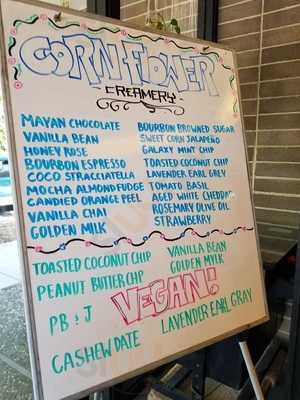 CORNFLOWER
CREAMERY
MAYAN CHOCOLATE
VANILLA BEAN
HONEY ROSE
BOURBON ESPRESSO
COCO STRACCIATELLA
MOCHA ALMOND FUDGE
CANDIED ORANGE PEEL
VANILLA CHAI
GOLDEN MILK
BOURBON BROWNED SUGAR
SWEET CORN JALAPEÑO
GALAXY MINT CHIP
TOASTED COCONUT CHIP
LAVENDER EARL GREY
TOMATO BASIL
AGED WHITE CHEDDAR
ROSEMARY OLIVE OIL
STRAWBERRY
TOASTED COCONUT CHIP
PEANUT BUTTER CHIP
PB & J
CASHEW DATE
VANILLA BEAN
GOLDEN MYLK
VEGAN!
LAVENDER EARL GRAY